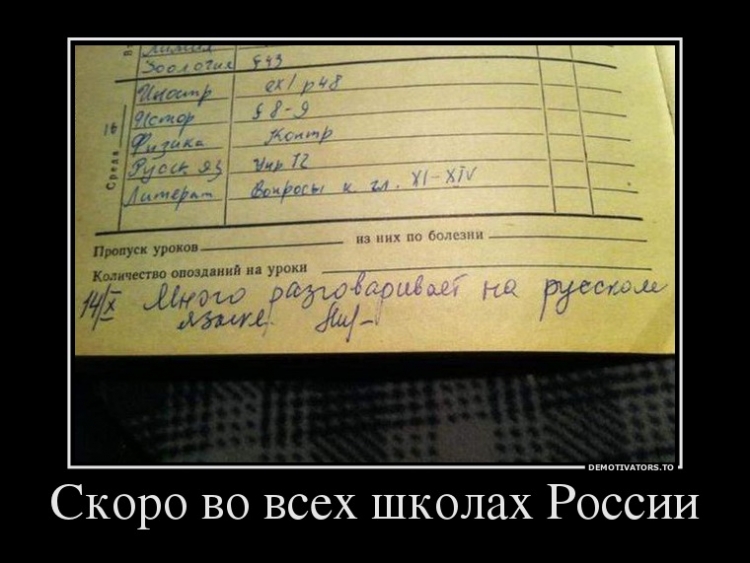 Химия
Зоология §43
Иностр ex1 p48
Истор § 8-9
Среда 16
Физика Контр
Русск яз Упр 12
Литерат Вопросы к гл. XI-XIV
Пропуск уроков из них по болезни
Количество опозданий на уроки
14/X Много разговаривает на русском
языке.
DEMOTIVATORS.TO
Скоро во всех школах России